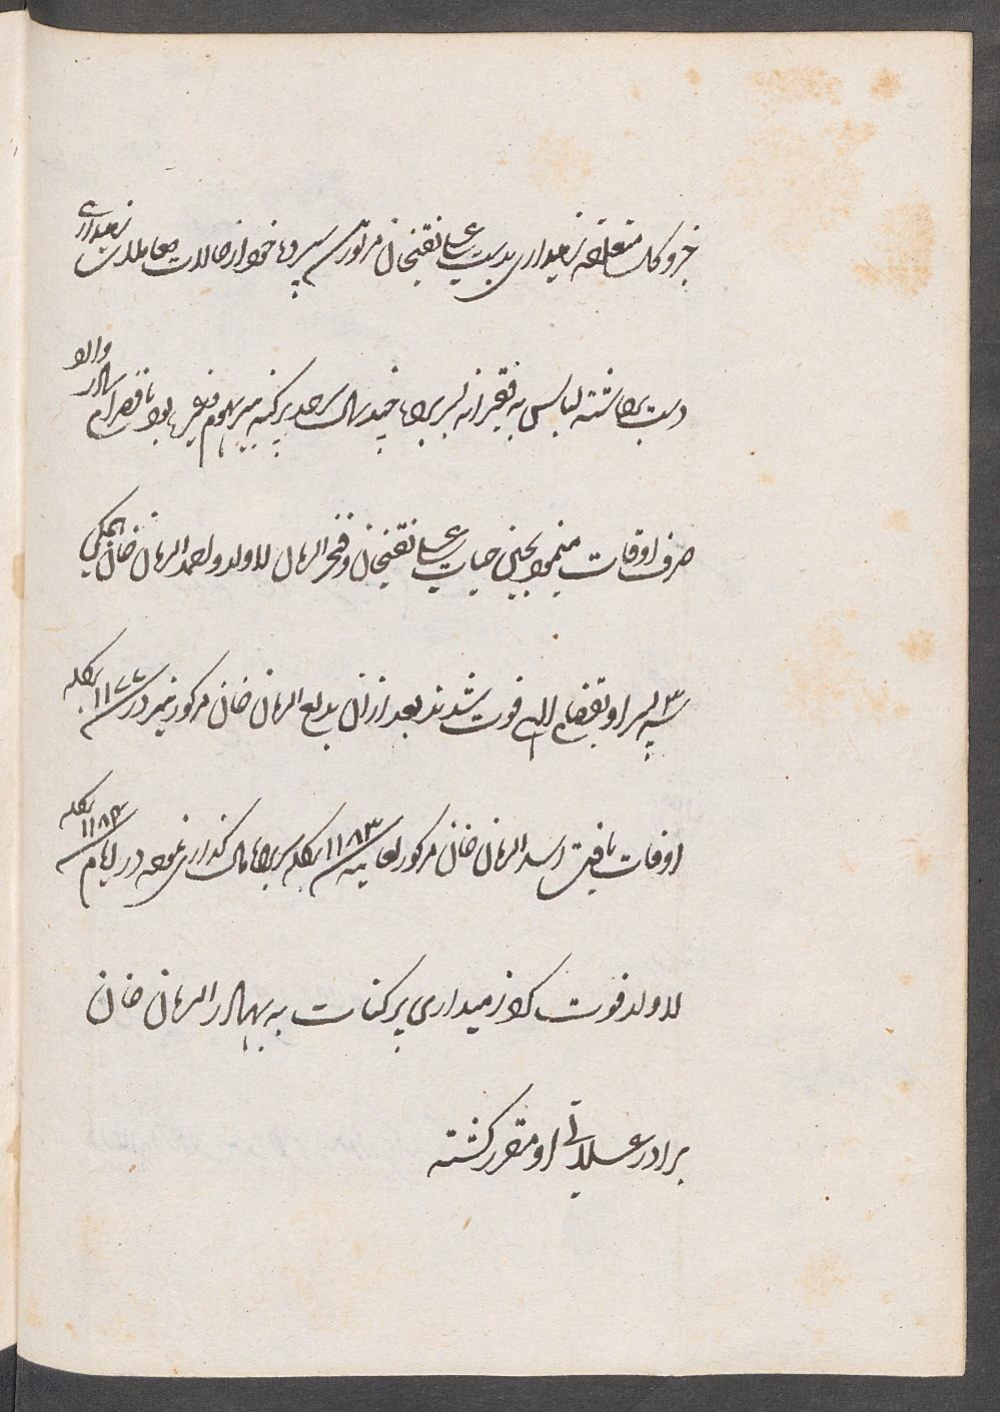 جز و کل متعلقه زمینداری بدست علی نقیخان مذکور سپرده خود از حالات معاملات زمینداری
دست برداشته لباس به فقیرانه بسر برده چند سال سرحد پرکنه میر بهوم بود تا
صرف اوقات مینمود بحین حیات علی نقیخان و فخر الزمان لاولد و احمد الزمان خان
سه پسر او بقضای الهی فوت شدند بعد ازان بدیع الزمان خان مذکور نیز در ۱۱۷۷ بنکله
اوقات یافت اسد الزمان خان مذکور لغایت ۱۱۸۳ بنکله سربراه مال کذاری نموده در ایام ۱۱۸۴ بنکله
لاولد فوت کرد زمینداری پرکنات به بهادر الزمان خان
برادر علاتی او مقرر کشته